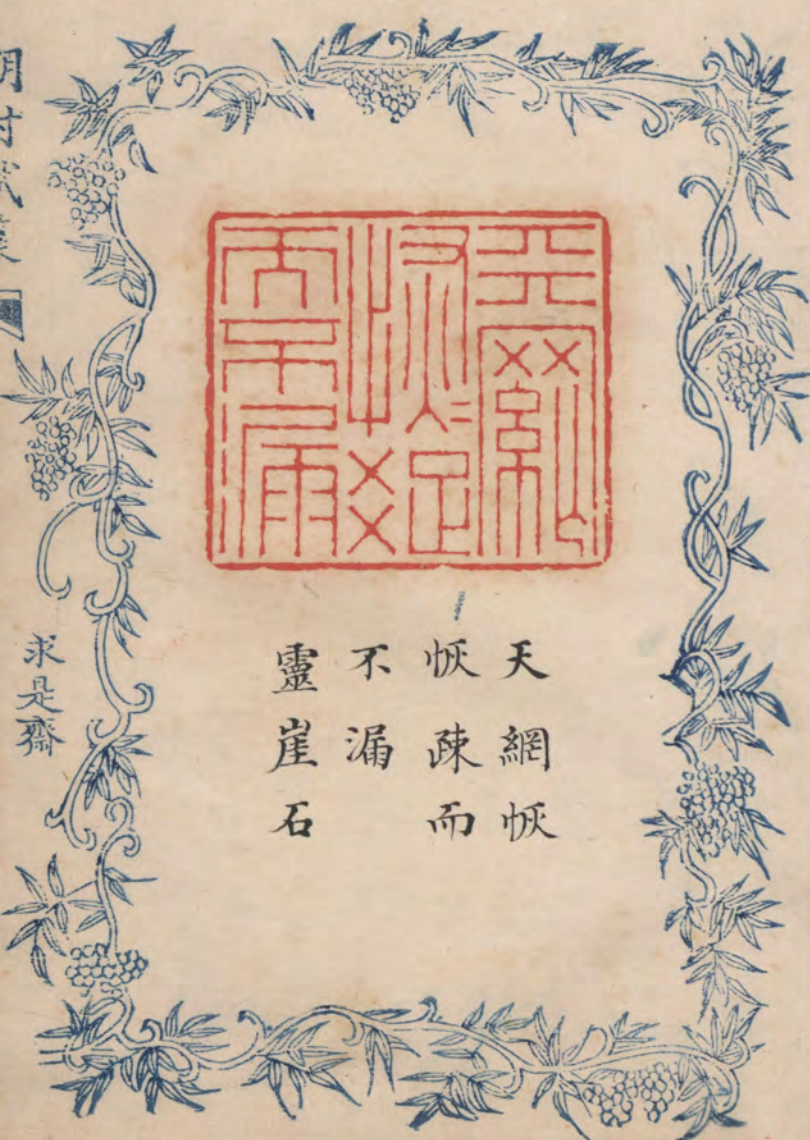 天網恢恢疎而不漏
天網恢
恢疎而
不漏
靈崖石
求是齋